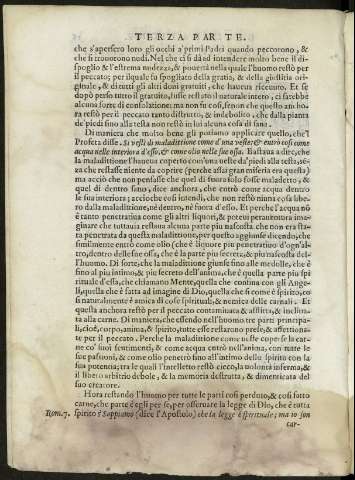 TERZA PARTE.
che s'apersero loro gli occhi a' primi Padri quando peccorono, &
che si trouorono nudi. Nel che ci si dà ad intendere molto bene il di-
spoglio & l'estrema nudezza, & pouertà nella quale l'huomo restò per
il peccato; per ilquale fu spogliato della gratia, & della giustitia ori-
ginale, & di tutti gli altri doni gratuiti, che haueua riceuuto. Et se
dopò perso tutto il gratuito, fusse restato il naturale intero, ci sarebbe
alcuna sorte di consolatione; ma non fu cosi, senon che questo anchora
restò per il peccato tanto distrutto, & indebolito, che dalla pianta
de' piedi sino alla testa non restò in lui alcuna cosa di sana.
Di maniera che molto bene gli potiamo applicare quello, che'l
Profeta disse. Si vestì di maladittione come d'una veste: & entrò cosi come
acqua nelle interiora d'esso & come olio nelle sue ossa. Bastaua a dire, che
la maladittione l'haueua coperto con una ueste da' piedi alla testa, sen-
za che restasse niente da coprire (perche assai gran miseria era questa)
ma acciò che non pensasse che quel di fuora solo fosse maladetto, &
quel di dentro sano, dice anchora, che entrò come acqua dentro
le sua interiora; acciòche cosi intendi, che non restò niuna cosa libe-
ro dalla maladitione, nè dentro, nè fuora d'esso. Et perche l'acqua nõ
è tanto penetratiua come gli altri liquori, & poteui per auentura ima-
ginare che tuttauia restaua alcuna parte piu nascosta che non era sta-
ta penetrata da questa maladittione, per questo aggiunse dicendo, che
similmente entrò come olio (che è liquore piu penetratiuo d'ogn'al-
tro) dentro delle sue ossa, che è la parte piu secreta, & piu nascosta del-
l'huomo. Di sorte, che la maladittione giunse fino alle medolle, che è
fino al piu intimo, & piu secreto dell'anima, che è quella parte piu spi-
rituale d'essa, che chiamano Mente, quella che confina con gli Ange-
li, quella che è fatta ad imagine di Dio, quella che si come è spirito, co-
si naturalmente è amica di cose spirituali, & nemica delle carnali. Et
questa anchora restò per il peccato contaminata & afflitta, & inclina-
ta alla carne. Di maniera, che essendo nell'huomo tre parti principa-
li, cioè, corpo, anima, & spirito, tutte esse restarono prese, & affettiona-
te per il peccato. Perche la maladittione come veste coperse la car-
ne co' suoi sentimenti, & come acqua entrò nell'anima, con tutte le
sue passioni, & come olio penetrò fino all'intimo dello spirito con la
sua potencia; tra le quali l'intelletto restò cieco, la volontà inferma, &
il libero arbitrio debole, & la memoria destrutta, & dimenticata del
suo creatore.
Hora restando l'huomo per tutte le parti cosi perduto, & cosi fatto
carne, che parte degli per se, per osseruare la legge di Dio, che è tutta
Rom.7. spirito? Sappiamo (dice l'Apostolo) che la legge è spirituale; ma io son
car-